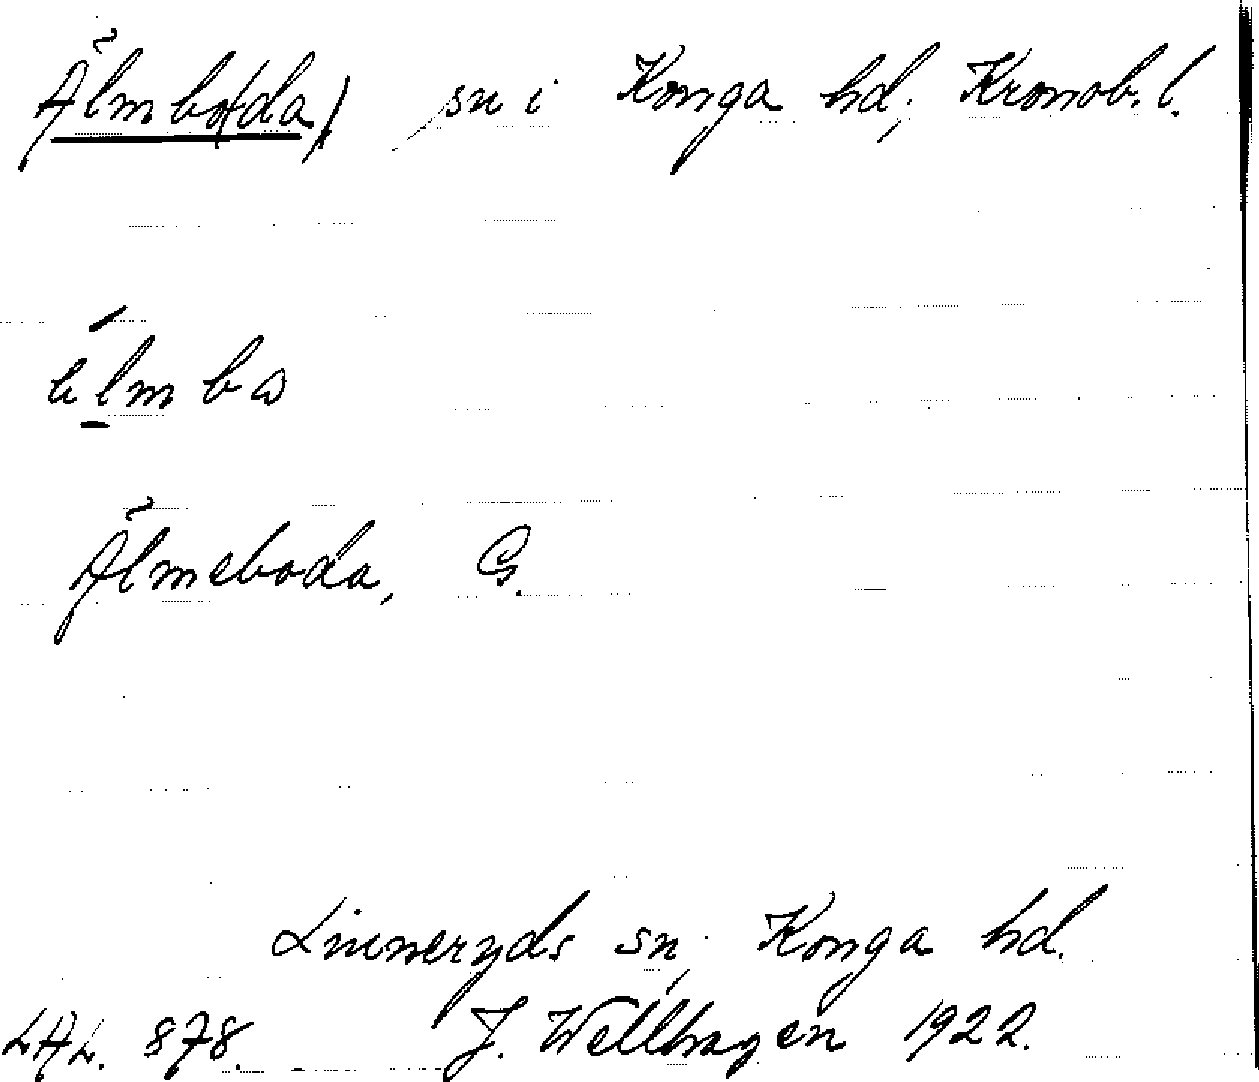 Älmbo(da), sn i Konga hd, Kronob. l.
älmbω
Älmeboda, G.
Linneryds sn, Konga hd.
LAL. 878. J. Wellhagen 1922.